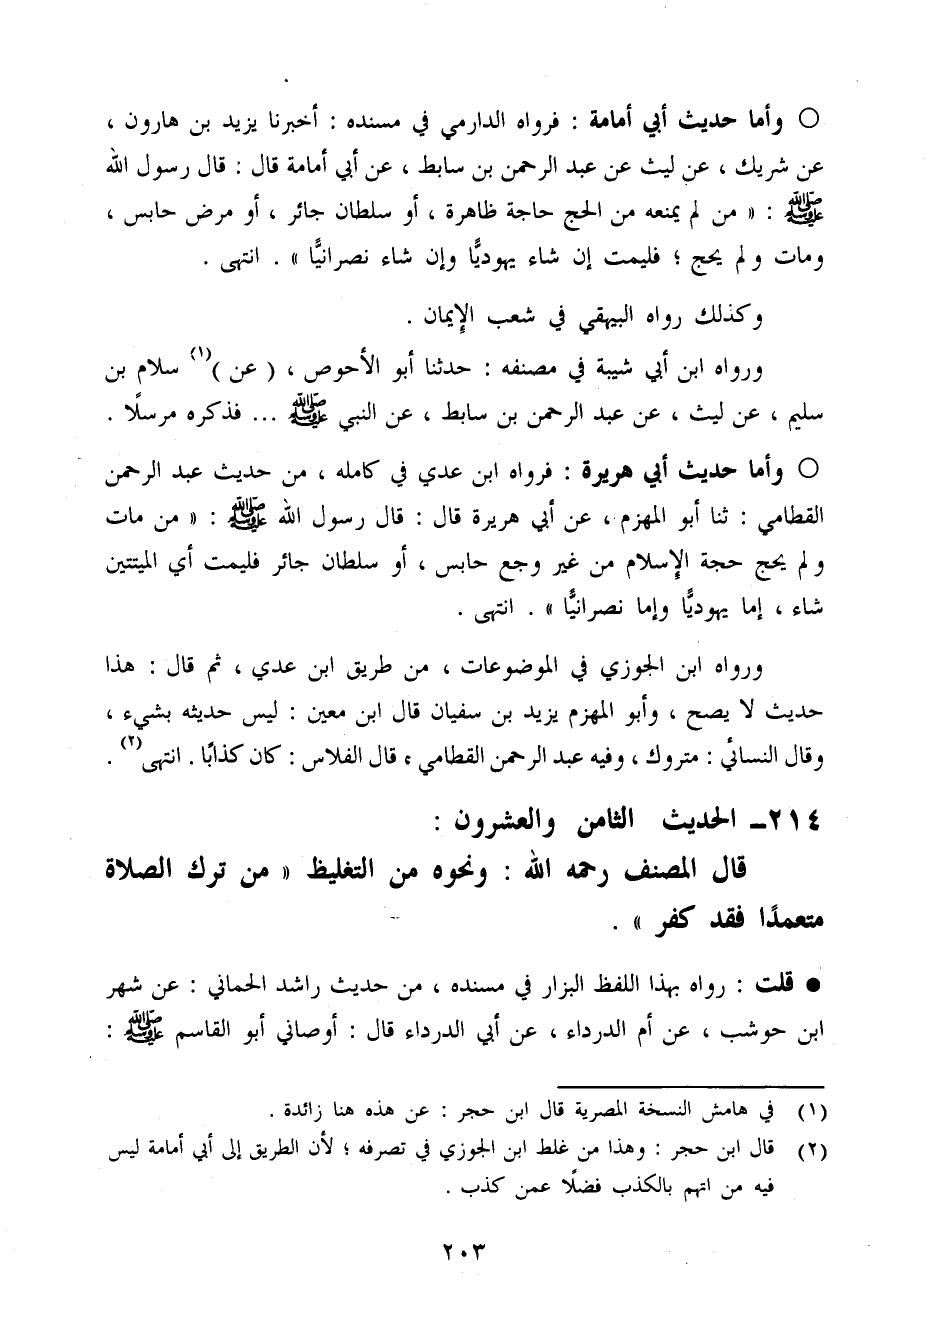 ○ وأما حديث أبي أمامة : فرواه الدارمي في مسنده : أخبرنا يزيد بن هارون ،
عن شريك ، عن ليث عن عبد الرحمن بن سابط ، عن أبي أمامة قال : قال رسول الله
ﷺ : « من لم يمنعه من الحج حاجة ظاهرة ، أو سلطان جائر ، أو مرض حابس ،
ومات ولم يحج ؛ فليمت إن شاء يهوديًّا وإن شاء نصرانيًّا » . انتهى .
وكذلك رواه البيهقي في شعب الإيمان .
ورواه ابن أبي شيبة في مصنفه : حدثنا أبو الأحوص ، ( عن )(١) سلام بن
سليم ، عن ليث ، عن عبد الرحمن بن سابط ، عن النبي ﷺ ... فذكره مرسلًا .
○ وأما حديث أبي هريرة : فرواه ابن عدي في كامله ، من حديث عبد الرحمن
القطامي : ثنا أبو المهزم ، عن أبي هريرة قال : قال رسول الله ﷺ : « من مات
ولم يحج حجة الإسلام من غير وجع حابس ، أو سلطان جائر فليمت أي الميتتين
شاء ، إما يهوديًّا وإما نصرانيًّا » . انتهى .
ورواه ابن الجوزي في الموضوعات ، من طريق ابن عدي ، ثم قال : هذا
حديث لا يصح ، وأبو المهزم يزيد بن سفيان قال ابن معين : ليس حديثه بشيء ،
وقال النسائي : متروك ، وفيه عبد الرحمن القطامي ، قال الفلاس : كان كذابًا . انتهى(٢) .
٢١٤ـ الحديث الثامن والعشرون :
قال المصنف رحمه الله : ونحوه من التغليظ « من ترك الصلاة
متعمدًا فقد كفر » .
● قلت : رواه بهذا اللفظ البزار في مسنده ، من حديث راشد الحماني : عن شهر
ابن حوشب ، عن أم الدرداء ، عن أبي الدرداء قال : أوصاني أبو القاسم ﷺ :
(١) في هامش النسخة المصرية قال ابن حجر : عن هذه هنا زائدة .
(٢) قال ابن حجر : وهذا من غلط ابن الجوزي في تصرفه ؛ لأن الطريق إلى أبي أمامة ليس
فيه من اتهم بالكذب فضلًا عمن كذب .
٢٠٣